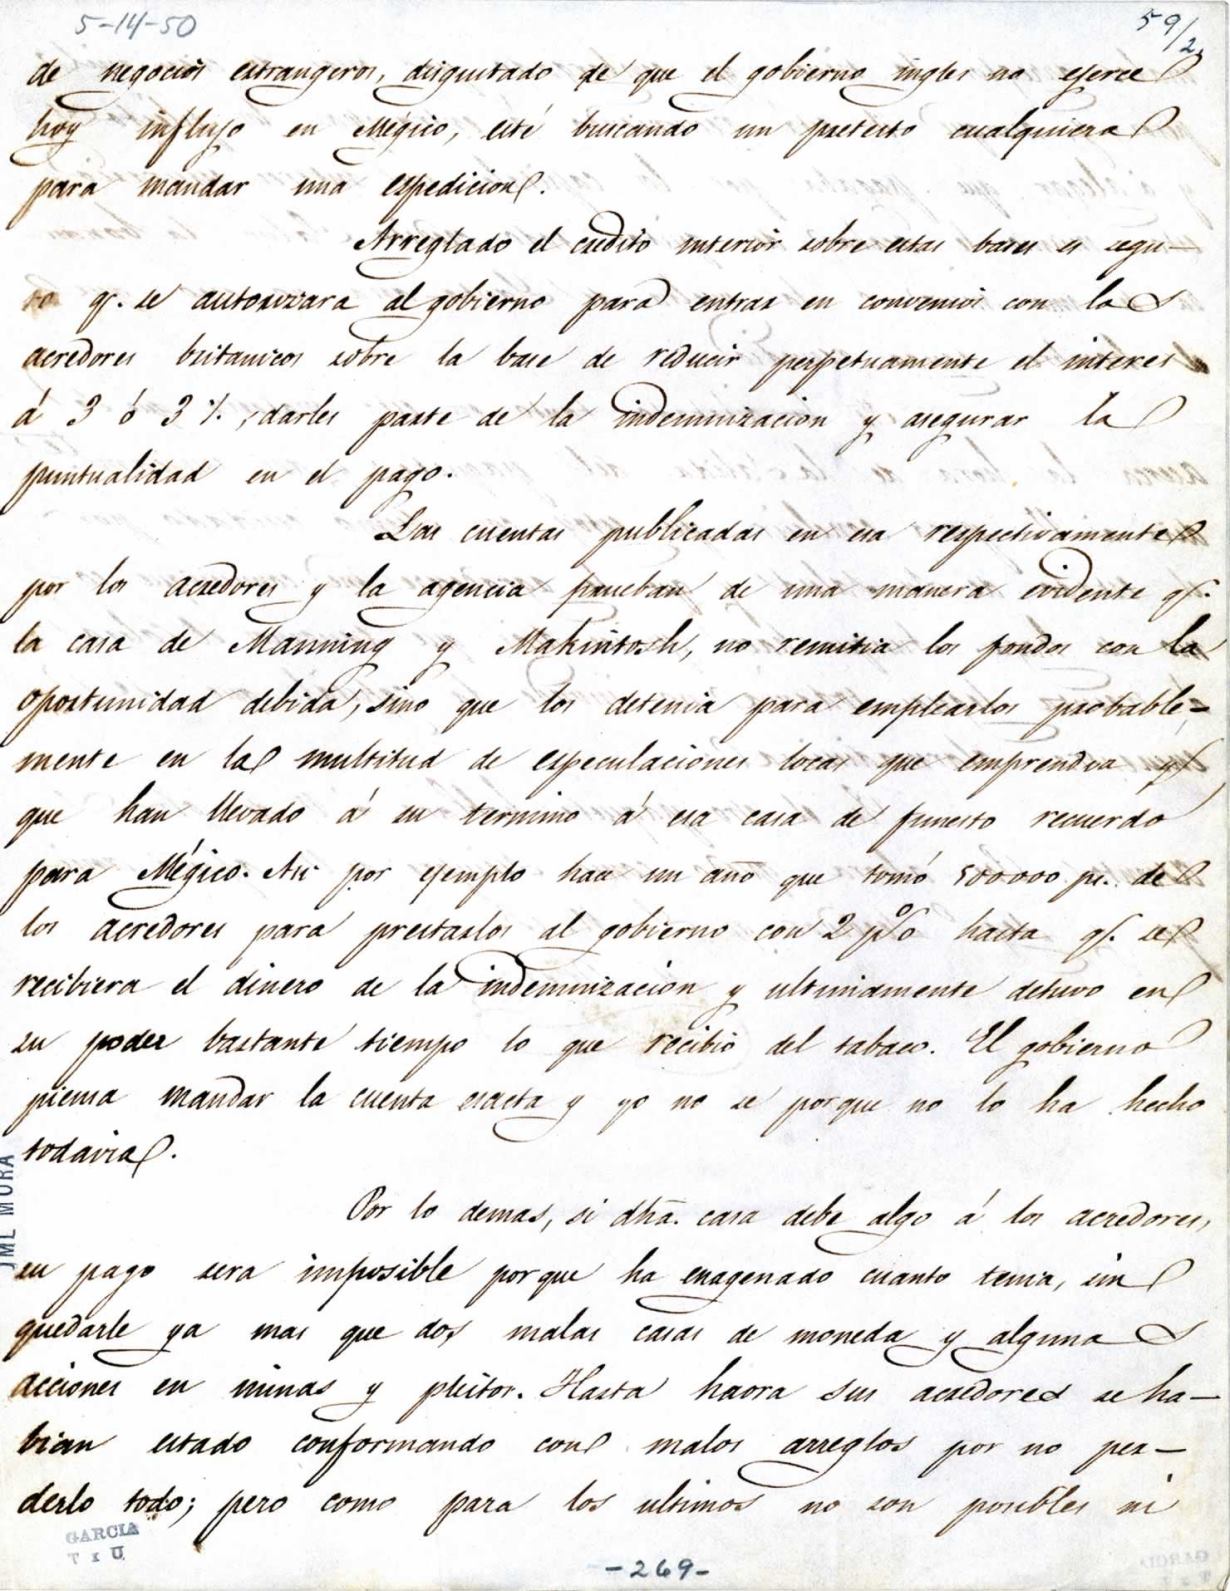 5-14-50
59/2
de negocios estrangeros, disgustado de que el gobierno ingles no egerce
hoy influjo en Mégico, esté buscando un pretesto cualquiera
para mandar una espedicion.
Arreglado el credito interior sobre estas bases es segu-
ro q. se autorizara al gobierno para entrar en convenios con los
acredores britanicos sobre la base de reducir perpetuamente el interes
á 3 ó 3 %, darles parte de la indemnizacion y asegurar la
puntualidad en el pago.
Las cuentas publicadas en esa respectivamente
por los acredores y la agencia prueban de una manera evidente q.
la casa de Manning y Makintosh, no remitia los fondos con la
oportunidad debida, sino que los detenia para emplearlos probable-
mente en la multitud de especulaciones locas que emprendia y
que han llevado á su termino á esa casa de funesto recuerdo
para Mégico. Asi por ejemplo hace un año que tomó 500000 ps. de
los acredores para prestarlos al gobierno con 2 p% hasta q. se
recibiera el dinero de la indemnizacion y ultimamente detuvo en
su poder bastante tiempo lo que recibio del tabaco. El gobierno
piensa mandar la cuenta esacta y yo no se porque no lo ha hecho
todavia.
Por lo demas, si dha. casa debe algo á los acredores,
su pago sera imposible porque ha enagenado cuanto tenia, sin
quedarle ya mas que dos malas casas de moneda y algunas
acciones en minas y pleitos. Hasta haora sus acredores se ha-
bian estado conformando con malos arreglos por no per-
derlo todo; pero como para los ultimos no son posibles ni
JML MORA
GARCIA
T x U
-269-